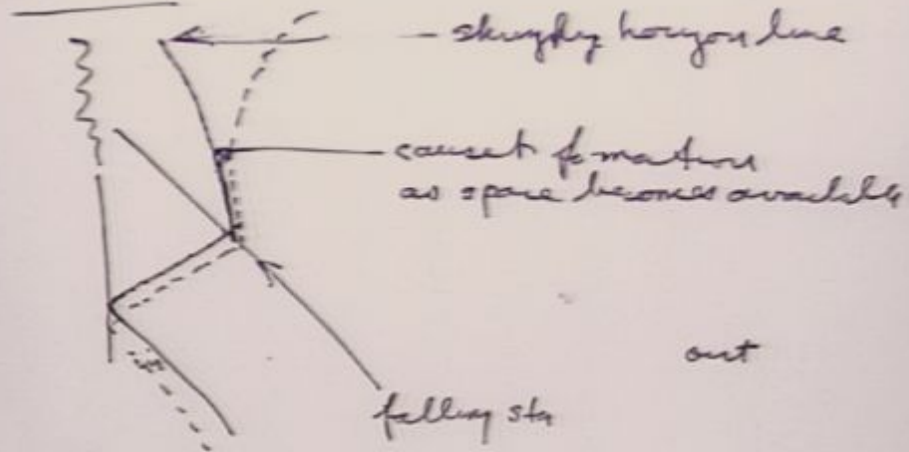 horizon line
causet formation
as space becomes available
out
falling star